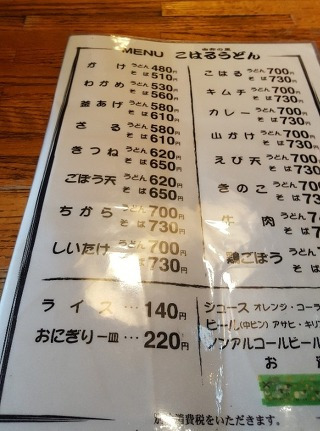 MENU こはるうどん
かけ うどん 480円
そば 510円
わかめ うどん 530円
そば 560円
釜あげ うどん 580円
そば 610円
ざる うどん 580円
そば 610円
きつね うどん 620円
そば 650円
ごぼう天 うどん 620円
そば 650円
ちから うどん 700円
そば 730円
しいたけ うどん 700円
そば 730円
こはる うどん 700円
そば 730円
キムチ うどん 700円
そば 730円
カレー うどん 700円
そば 730円
山かけ うどん 700円
そば 730円
えび天 うどん 700円
そば 730円
きのこ うどん 700円
そば 730
牛肉 うどん
そば
鶏ごぼう うどん
そば
ライス … 140円
おにぎり一皿 … 220円
ジュース オレンジ・コーラ
ビール(中ビン) アサヒ・キリ
ノンアルコールビール
お
消費税をいただきます。